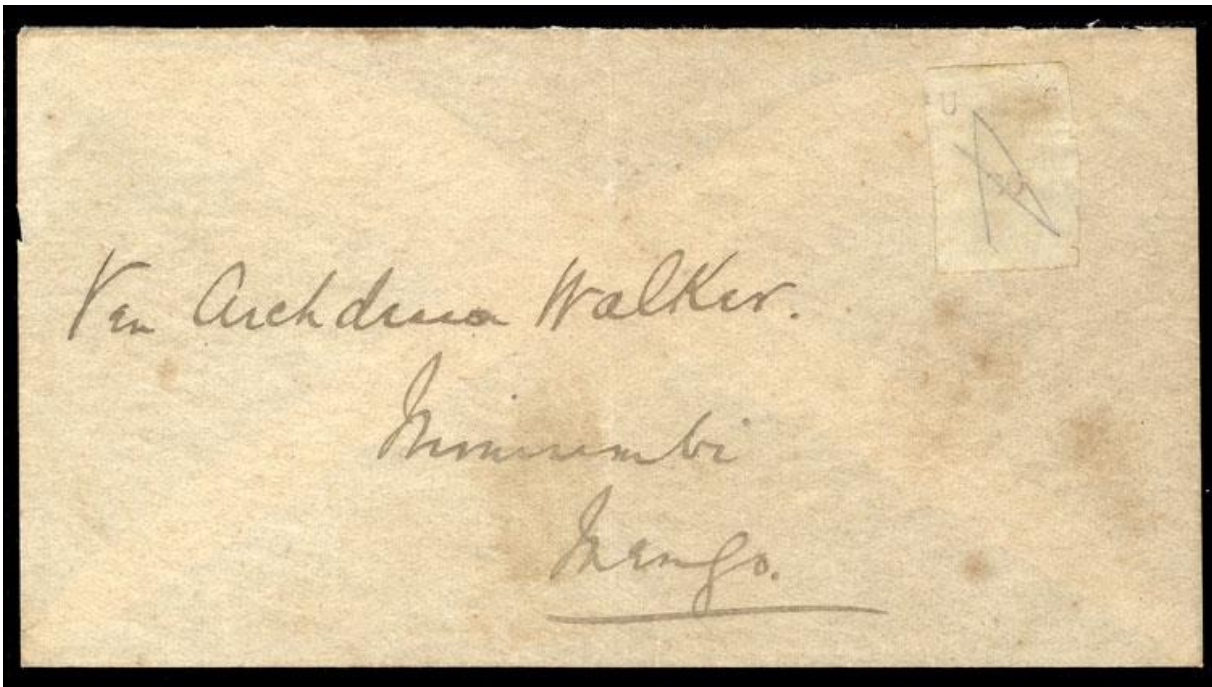 U
Ven Archdeacon Walker.
Namirembi
Mengo.